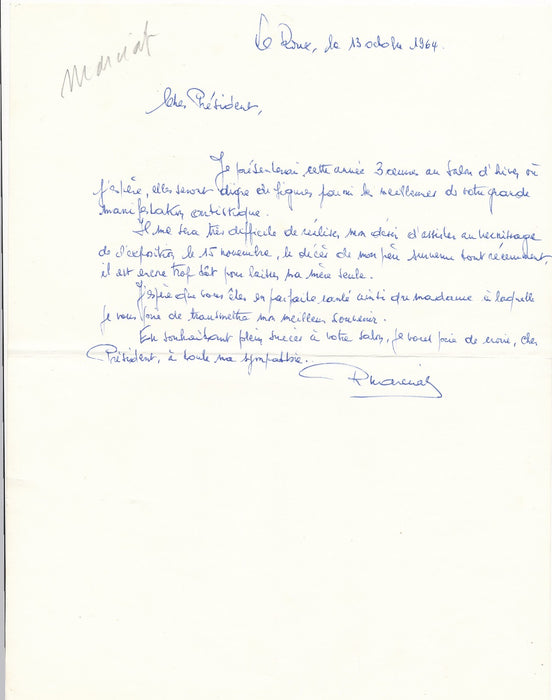 Marciat
le 13 octobre 1964.
Cher Président,
Je présenterai cette année 3 œuvres au Salon d'hiver où
j'espère, elles seront digne de figurer parmi les meilleures de votre grande
manifestation artistique.
Il me sera très difficile de réaliser mon désir d'assister au vernissage
de l'exposition le 15 novembre, le décès de mon père survenu tout récemment,
il est encore trop tôt pour laisser ma mère seule.
J'espère que vous êtes en parfaite santé ainsi que madame à laquelle
je vous prie de transmettre mon meilleur souvenir.
En souhaitant plein succès à votre salon, je vous prie de croire, cher
Président, à toute ma sympathie.